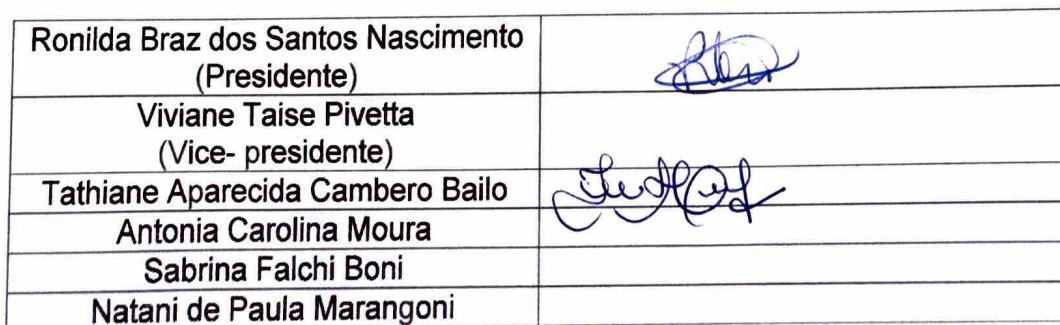 Ronilda Braz dos Santos Nascimento
(Presidente)
Viviane Taise Pivetta
(Vice- presidente)
Tathiane Aparecida Cambero Bailo
Antonia Carolina Moura
Sabrina Falchi Boni
Natani de Paula Marangoni